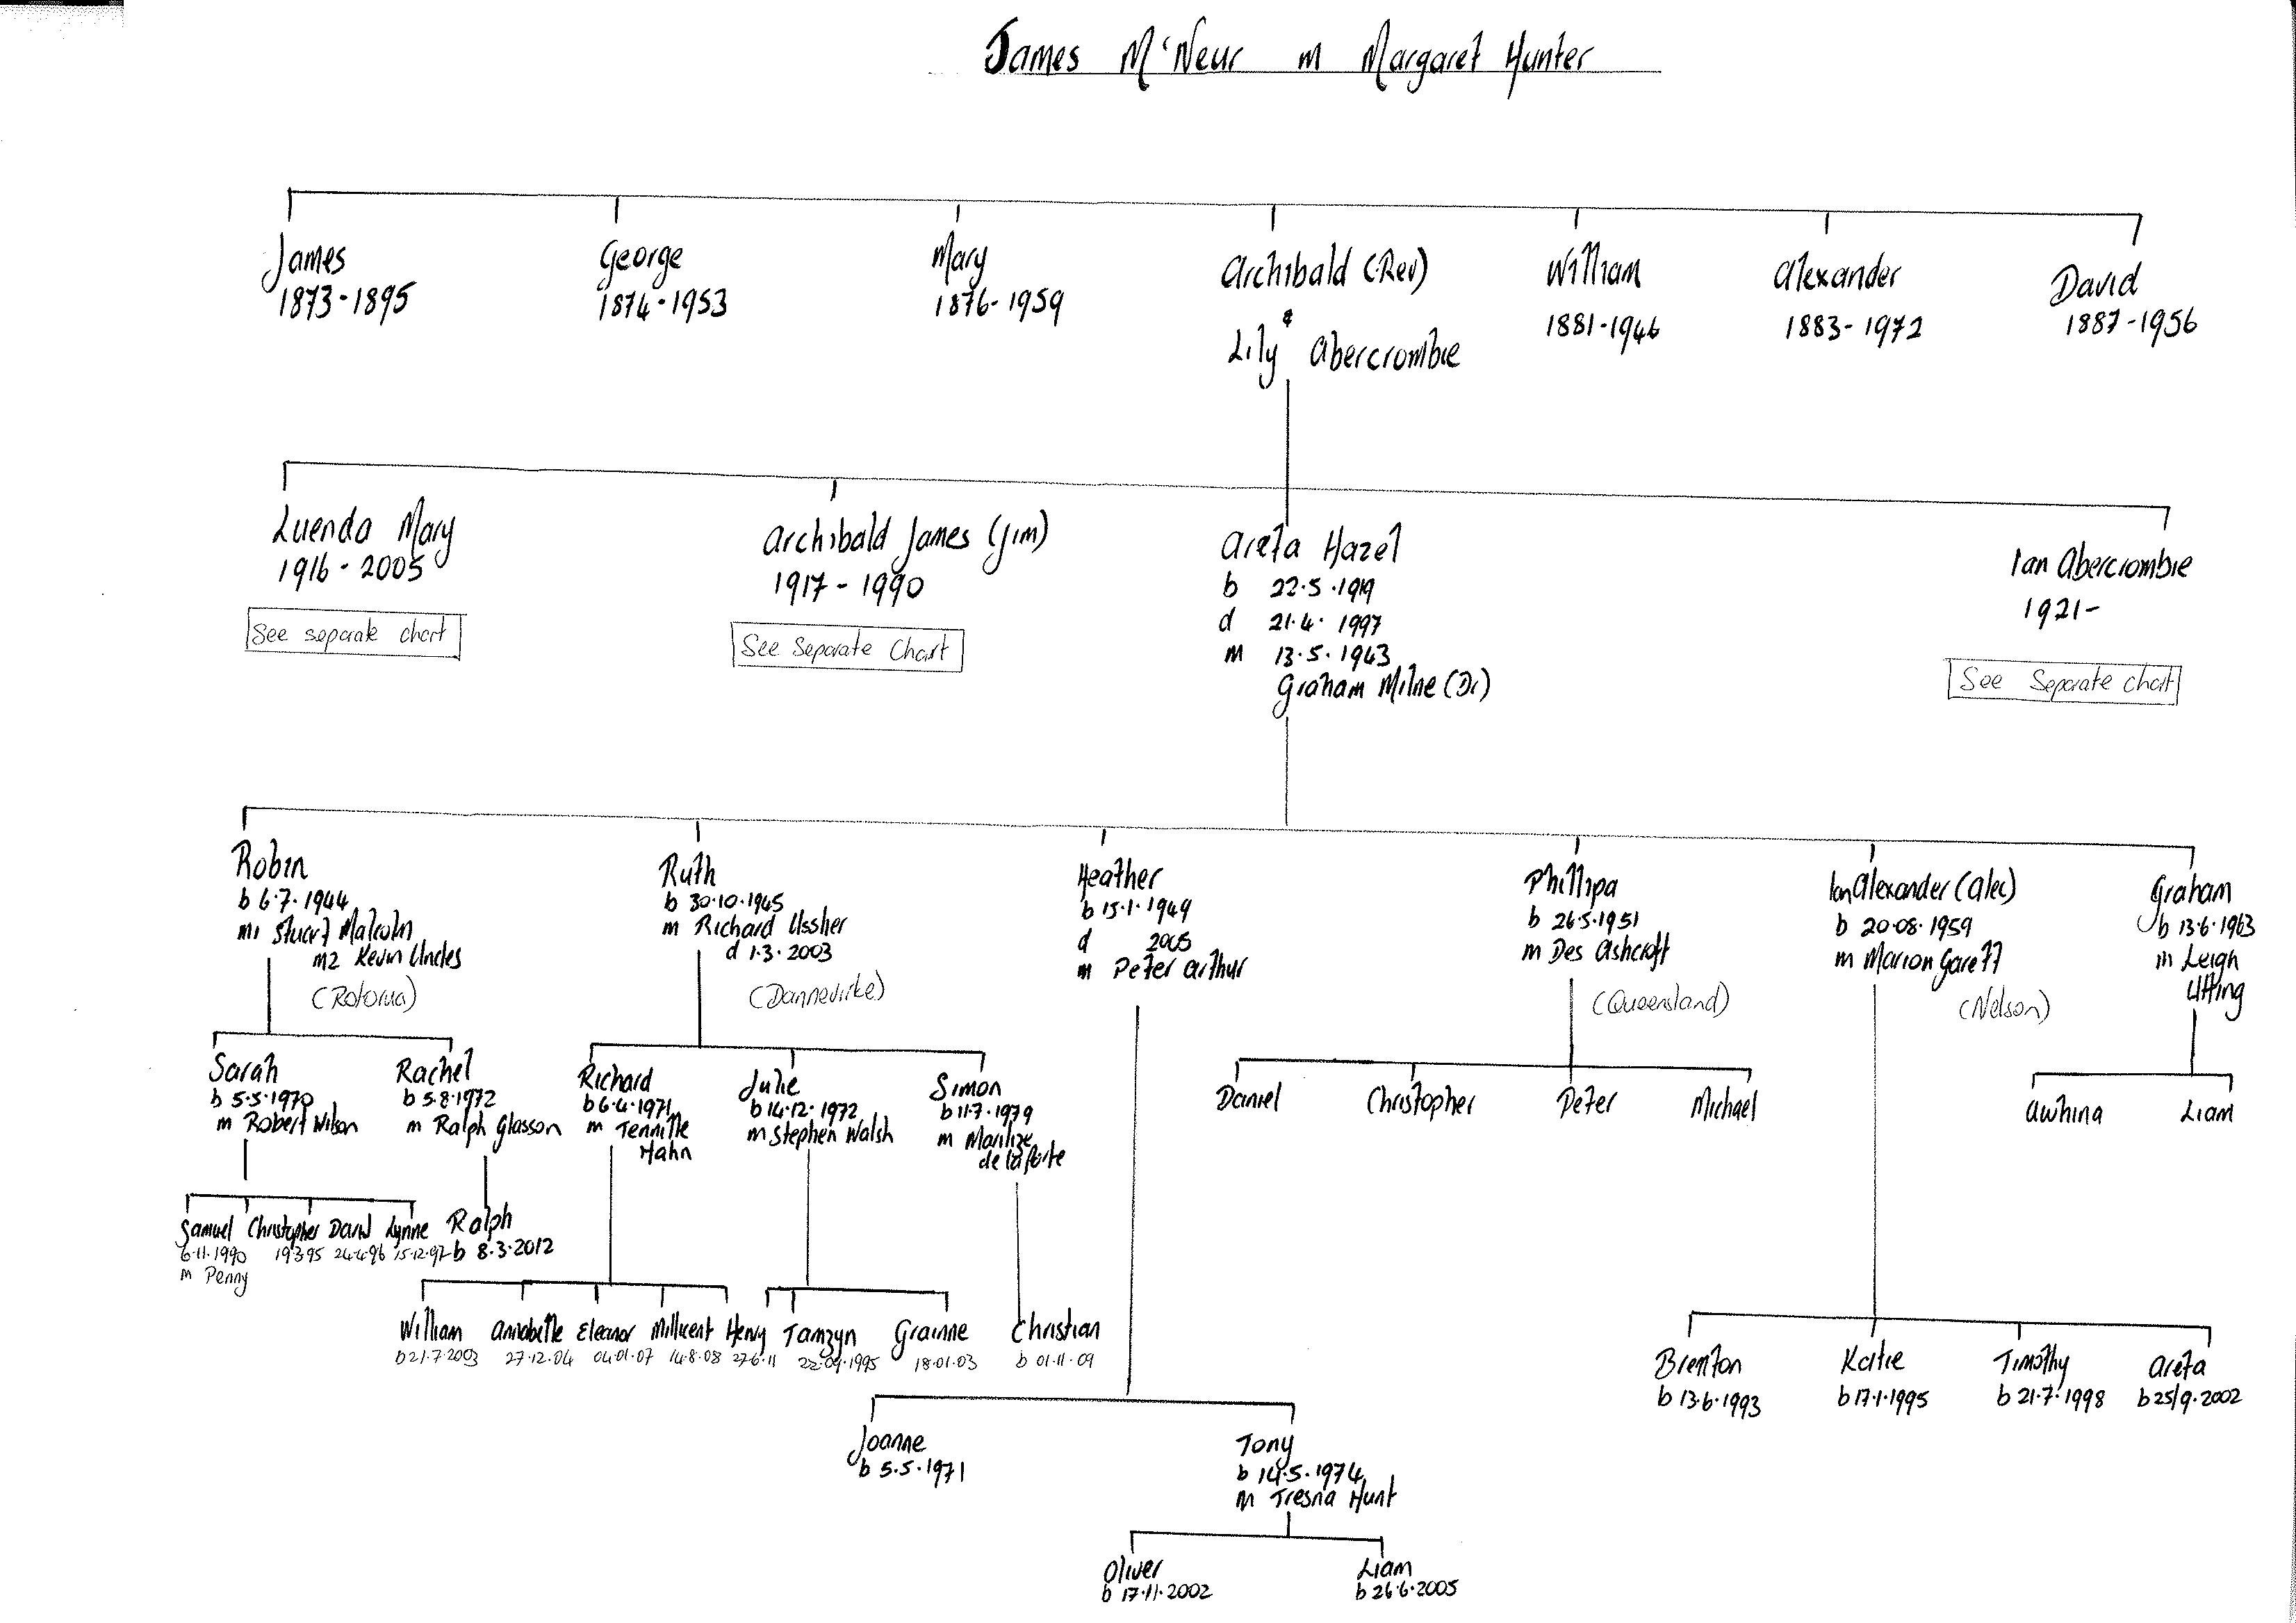 James M'Neur m Margaret Hunter
James
1873-1895
George
1874-1953
Mary
1876-1959
Archibald (Rev)
&
Lily Abercrombie
William
1881-1946
Alexander
1883-1972
David
1887-1956
Luenda Mary
1916-2005
See separate chart
Archibald James (Jim)
1917-1990
See Separate Chart
Areta Hazel
b 22.5.1919
d 21.4.1997
m 13.5.1943
Graham Milne (Dr)
Ian Abercrombie
1921-
See Separate chart
Robin
b 6.7.1944
m1 Stuart Malcolm
m2 Kevin Uncles
(Rotorua)
Ruth
b 30.10.1945
m Richard Ussher
d 1.3.2003
(Dannevirke)
Heather
b 15.1.1949
d 2005
m Peter Arthur
Phillipa
b 26.5.1951
m Des Ashcroft
(Queensland)
Ian Alexander (Alec)
b 20.08.1959
m Marion Garett
(Nelson)
Graham
b 13.6.1963
m Leigh
Uffing
Sarah
b 5.5.1970
m Robert Wilson
Rachel
b 5.8.1972
m Ralph Glasson
Richard
b 6.4.1971
m Tennille
Hahn
Julie
b 14.12.1972
m Stephen Walsh
Simon
b 11.7.1979
m Marilize
de la Porte
Daniel
Christopher
Peter
Michael
Awhina
Liam
Samuel
6.11.1990
m Penny
Christopher
19.3.95
David
24.4.96
Lynne
15.12.97
Ralph
b 8.3.2012
William
b 21.7.2003
Annabelle
27.12.04
Eleanor
04.01.07
Millicent
14.8.08
Henry
27.6.11
Tamzyn
22.09.1995
Grainne
18.01.03
Christian
b 01.11.09
Brenton
b 13.6.1993
Katie
b 17.1.1995
Timothy
b 21.7.1998
Areta
b 25/9.2002
Joanne
b 5.5.1971
Tony
b 14.5.1974
m Tresna Hunt
Oliver
b 17.11.2002
Liam
b 26.6.2005